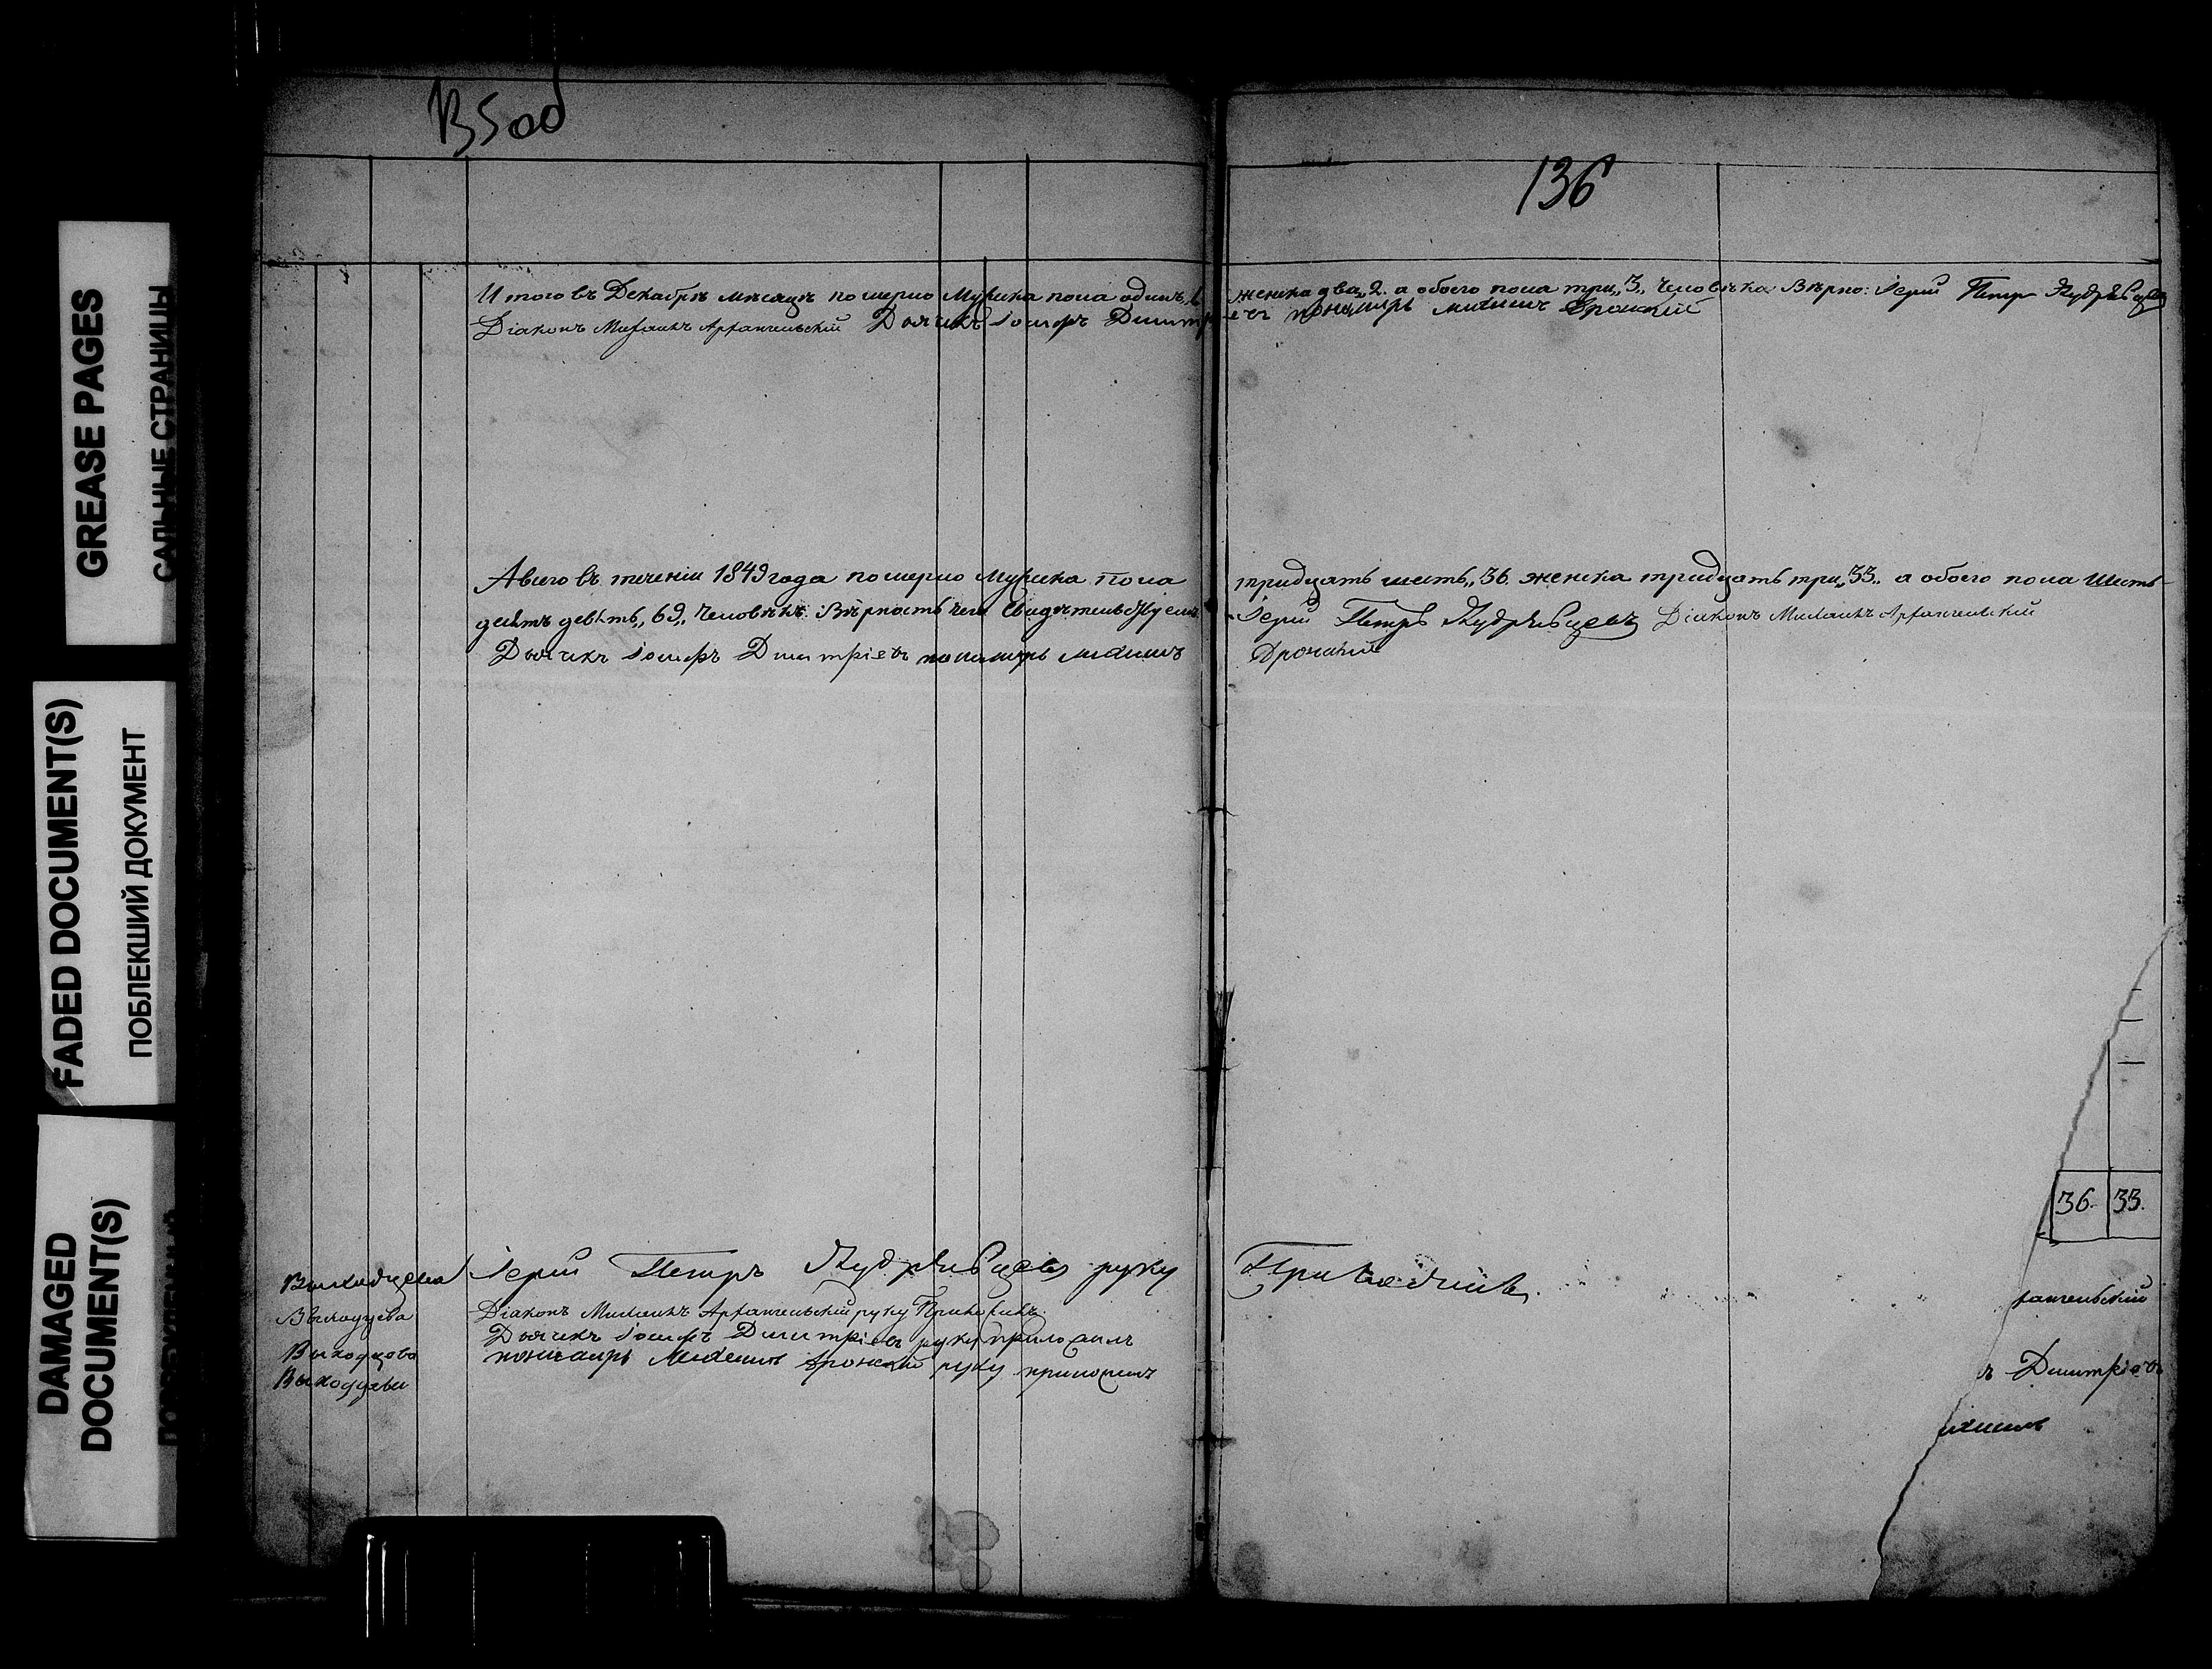 GREASE PAGES
САЛЬНЫЕ СТРАНИЦЫ
FADED DOCUMENT(S)
ПОБЛЕКШИЙ ДОКУМЕНТ
DAMAGED
DOCUMENT(S)
136
Итого въ Декабрѣ мѣсяцѣ померло Мужеска пола одинъ, женска два„ 2. а обоего пола три„ 3„ человѣка Вѣрно: Іерей Петръ Кудрявцевъ
Діаконъ Михаилъ Архангельскій Дьячекъ Іосифъ Димитріевъ пономарь михаилъ
А всего въ теченіи 1849 года померло Мужеска пола тридцать шесть„ 36. женска тридцать три„ 33„ а обоего пола шесть-
десятъ девять„ 69„ человѣкъ. Вѣрность чего свидетельствуемъ: Іерей Петръ Кудрявцевъ Діаконъ Михаилъ Архангельскій
Дьячекъ Іосифъ Димитріевъ пономарь михаилъ
36. 33.
Іерей Петръ Кудрявцевъ руку Приложилъ.
Діаконъ Михаилъ Архангельскій руку Приложилъ.
Дьячекъ Іосифъ Димитріевъ руку приложилъ
пономарь Михаилъ руку приложилъ
хангельскій
ъ Димитріевъ
ихаилъ